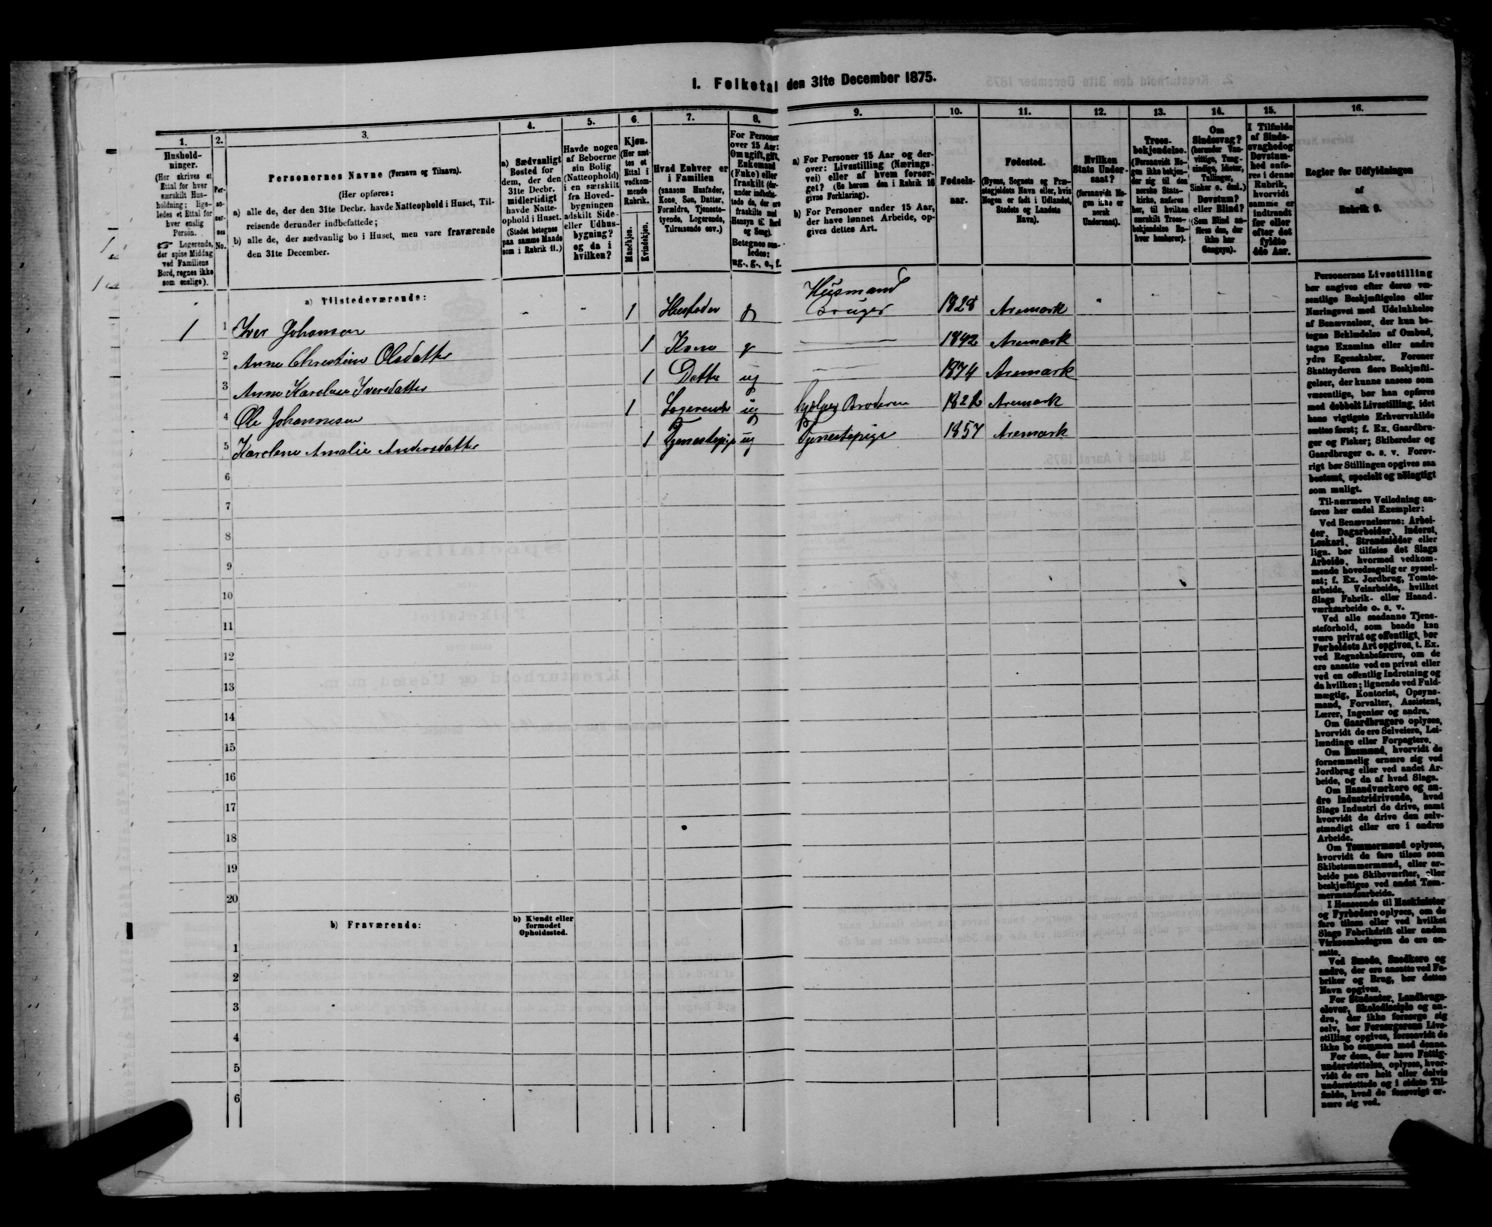 1. Folketal den 31te December 1875.
1.
2.
3.
4.
5.
6.
7.
8.
9.
10.
11.
12.
13.
14.
15.
16.
Husholdninger.
(Her skrives et Ettal for hver særskilt Husholdning; ligeledes et Ettal for hver enslig Person.
Logerende, der spise Middag ved Familiens Bord, regnes ikke som enslige).
Personernes No.
Personernes Navne (Fornavn og Tilnavn).
(Her opføres:
a) alle de, der den 31te Decbr. havde Natteophold i Huset, Tilreisende derunder indbefattede;
b) alle de, der sædvanlig bo i Huset, men vare fraværende den 31te December.
a) Sædvanligt Bosted for dem, der den 31te Decbr. midlertidigt havde Natteophold i Huset.
(Stedet betegnes paa samme Maade som i Rubrik 11.)
Havde nogen af Beboerne sin Bolig (Natteophold) i en særskilt fra Hovedbygningen adskilt Side- eller Udhusbygning? og da i hvilken?
Kjøn.
(Her sættes et Ettal i vedkommende Rubrik.
Mandkjøn.
Kvindekjøn.
Hvad Enhver er i Familien
(saasom Husfader, Kone, Søn, Datter, Forældre, Tjenestetyende, Logerende, Tilreisende osv.)
For Personer over 15 Aar:
Om ugift, gift, Enkemand (Enke) eller fraskilt
Betegnes saaledes: ug., g., e., f.
a) For Personer 15 Aar og derover: Livsstilling (Næringsvei) eller af hvem forsørget? (Se herom den i Rubrik 16 givne Forklaring).
b) For Personer under 15 Aar, der have lønnet Arbeide, opgives dettes Art.
Fødselsaar.
Fødested.
(Byens, Sognets og Præstegjeldets Navn eller, hvis Nogen er født i Udlandet, Stedets og Landets Navn).
Hvilken Stats Undersaat?
(Forsaavidt Nogen ikke er norsk Undersaat).
Troesbekjendelse.
(Forsaavidt Nogen ikke bekjender sig til den norske Statskirke, anføres her, til hvilken særskilt Troesbekjendelse Enhver henhører).
Om Sindssvag?
Døvstum? eller Blind?
I Tilfælde af Sindssvaghed og Døvstumhed anføres i denne Rubrik, hvorvidt samme er indtraadt før eller efter det fyldte 4de Aar.
Regler for Udfyldningen
af
Rubrik 9.
a) Tilstedeværende:
1 1 Iver Johansen 1 Husfader g Husmand Bruger 1828 Aremark
2 Anne Christine Olsdatter 1 Kone g 1842 Aremark
3 Anne Karoline Iversdatter 1 Datter ug 1874 Aremark
4 Ole Johannesen 1 Logerende ug hjelper Broderen 1822 Aremark
5 Karoline Amalie Andersdatter 1 Tjenestepige ug Tjenestepige 1857 Aremark
6
7
8
9
10
11
12
13
14
15
16
17
18
19
20
b) Fraværende:
b) Kjendt eller formodet Opholdssted.
1
2
3
4
5
6
Personernes Livsstilling bør angives efter deres væsentlige Beskjæftigelse eller Næringsvei med Udelukkelse af Benævnelser, der kun betegne Bekledelse af Ombud, tagne Examina eller andre ydre Egenskaber. Forener Skatteyderen flere Beskjæftigelser, der kunne ansees som væsentlige, bør han opføres med dobbelt Livsstilling, idet hans vigtigste Erhvervskilde sættes først; f. Ex. Gaardbruger og Fisker; Skibsreder og Gaardbruger o. s. v. Forøvrigt bør Stillingen opgives saa bestemt, specielt og nøiagtigt som muligt.
Til nærmere Veiledning anføres her endel Exempler:
Ved Benævnelserne: Arbeider, Dagarbeider, Inderst, Løskarl, Strandsidder eller lign. bør tilføies det Slags Arbeide, hvormed vedkommende hovedsagelig er sysselsat; f. Ex. Jordbrug, Tomtearbeide, Veiarbeide, hvilket Slags Fabrik- eller Haandværksarbeide o. s. v.
Ved alle saadanne Tjenesteforhold, som baade kan være privat og offentligt, bør Forholdets Art opgives, t. Ex. ved Regnskabsførere, om de ere ansatte ved en privat eller ved en offentlig Indretning og da hvilken; lignende ved Fuldmægtig, Kontorist, Opsynsmand, Forvalter, Assistent, Lærer, Ingeniør og andre.
Om Gaardbrugere oplyses, hvorvidt de ere Selveiere, Leilændinge eller Forpagtere.
Om Husmænd, hvorvidt de fornemmelig ernære sig ved Jordbrug eller ved andet Arbeide, og da af hvad Slags.
Om Haandværkere og andre Industridrivende, hvad Slags Industri de drive, samt hvorvidt de drive den selvstændigt eller ere i andres Arbeide.
Om Tømmermænd oplyses, hvorvidt de fare tilsøs som Skibstømmermænd, eller arbeide paa Skibsværfter, eller beskjæftiges ved andet Tømmermandsarbeide.
I Henseende til Maskinister og Fyrbødere oplyses, om de fare tilsøs eller ved hvilket Slags Fabrikdrift eller anden Virksomhedsgren de ere ansatte.
Ved Smede, Snedkere og andre, der ere ansatte ved Fabriker og Brug, bør dettes Navn opgives.
For Studenter, Landbrugselever, Skoledisciple og andre, der ikke forsørge sig selv, bør Forsørgerens Livsstilling opgives, forsaavidt de ikke bo sammen med denne.
For dem, der have Fattigunderstøttelse, oplyses, hvorvidt de ere helt eller delvis understøttede og i sidste Tilfælde, hvad de forøvrigt ernære sig ved.